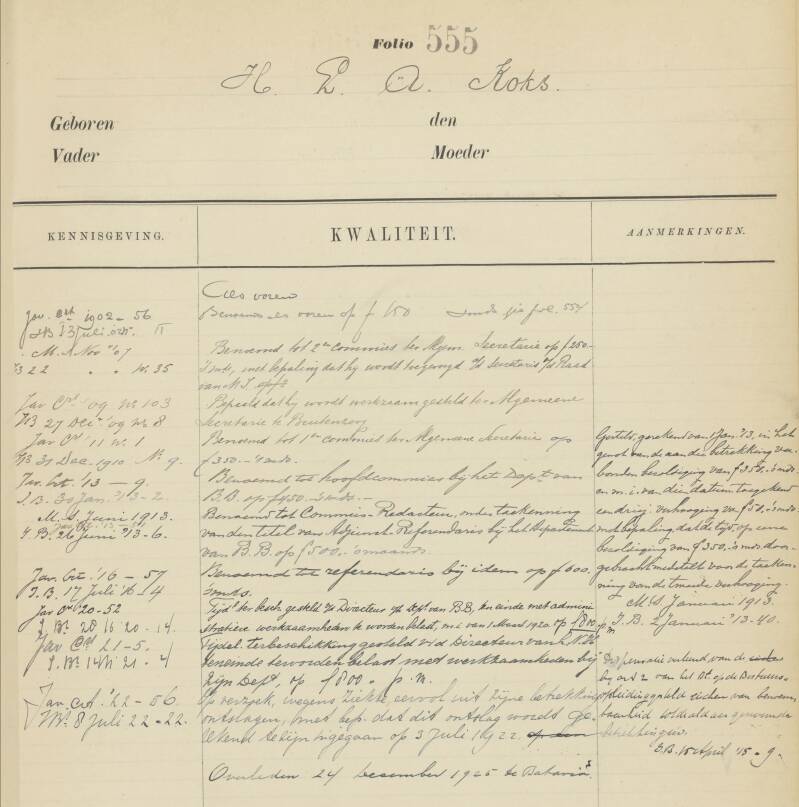 Folio 555
H. L. A. Koks.
Geboren den
Vader Moeder
KENNISGEVING. KWALITEIT. AANMERKINGEN.
als voren
Jav. Crt 1902 - 56
Benoemd als voren op f 150 's mds zie fol. 554
I.B. 13 Juli
M. S. Nov '07
Benoemd tot 2en commies ter Algem. Secretarie op f 250.-
I.B. 22 " " N. 35
's mds, met bepaling dat hij wordt toegevoegd a/d Secretaris v/d Raad
van N.I.
Jav Crt '09 No 103
Bepaald dat hij wordt werkzaam gesteld ter Algemeene
I.B. 27 Decr '09 No 8
Secretarie te Buitenzorg
Jav Crt '11 No. 1
Benoemd tot 1en commies ter Algemeene Secretarie op
I.B. 31 Dec. 1910 No 9.
f 350.- 's mds.
Jav. Crt. '13 - 9.
Benoemd tot hoofdcommies bij het Dept van
I.B. 30 Jan. '13 - 2
B.B. op f 450.- 's mds. -
M. S. Juni 1913.
Benoemd tot Commies-Redacteur, onder toekenning
I.B. 26 Juni '13 - 6.
van den titel van Adjunct-Referendaris bij het Departement
van B.B. op f 500.- 's maands.
Jav. Crt. '16 - 57
Benoemd tot referendaris bij idem op f 600.
I.B. 17 Juli '16 - 4
's mds.
Jav Crt '20 - 52
Tijd. ter besch. gesteld v/d Directeur v/h Dept. van B.B., ten einde met admini
I. Bt. 28/6 20 - 14.
stratieve werkzaamheden te worden belast, m.i.v. 1 Maart 1920 op f 800 p.m
Jav Crt 21 - 5.
Tijdel. ter beschikking gesteld v/d Directeur van
I. Bt. 14/1 21 - 4
teneinde te worden belast met werkzaamheden bij
zijn Dept., op f 800.- p.m.
Jav. Crt. '22 - 56.
Op verzoek, wegens ziekte, eervol uit zijne betrekking
I. Bt. 8 Juli 22 - 22.
ontslagen, met bep. dat dit ontslag wordt ge-
rekend te zijn ingegaan op 3 Juli 1922.
Overleden 24 December 1925 te Batavia
Gesteld, gerekend van 1 Jan. '13, in het
genot van de aan de betrekking ver-
bonden bezoldiging van f 350.- 's mds.
en m. i. v. dien datum toegekend
eene driej. verhooging van f 50.- 's mds.
met bepaling dat de tijd, op eene
bezoldiging van f 350.- 's mds. door-
gebracht meetelt voor de toeken-
ning van de tweede verhooging.
M. S. Januari 1913.
I.B. 2 Januari '13 - 40.
Dispensatie verleend van de
bij art 2 van het
opleiding gesteld eischen van benoem-
baarheid
betrekkingen.
I.B. 15 April '15 - 9.